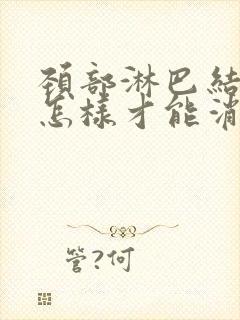 頚部淋巴結
怎樣才能消
管?何